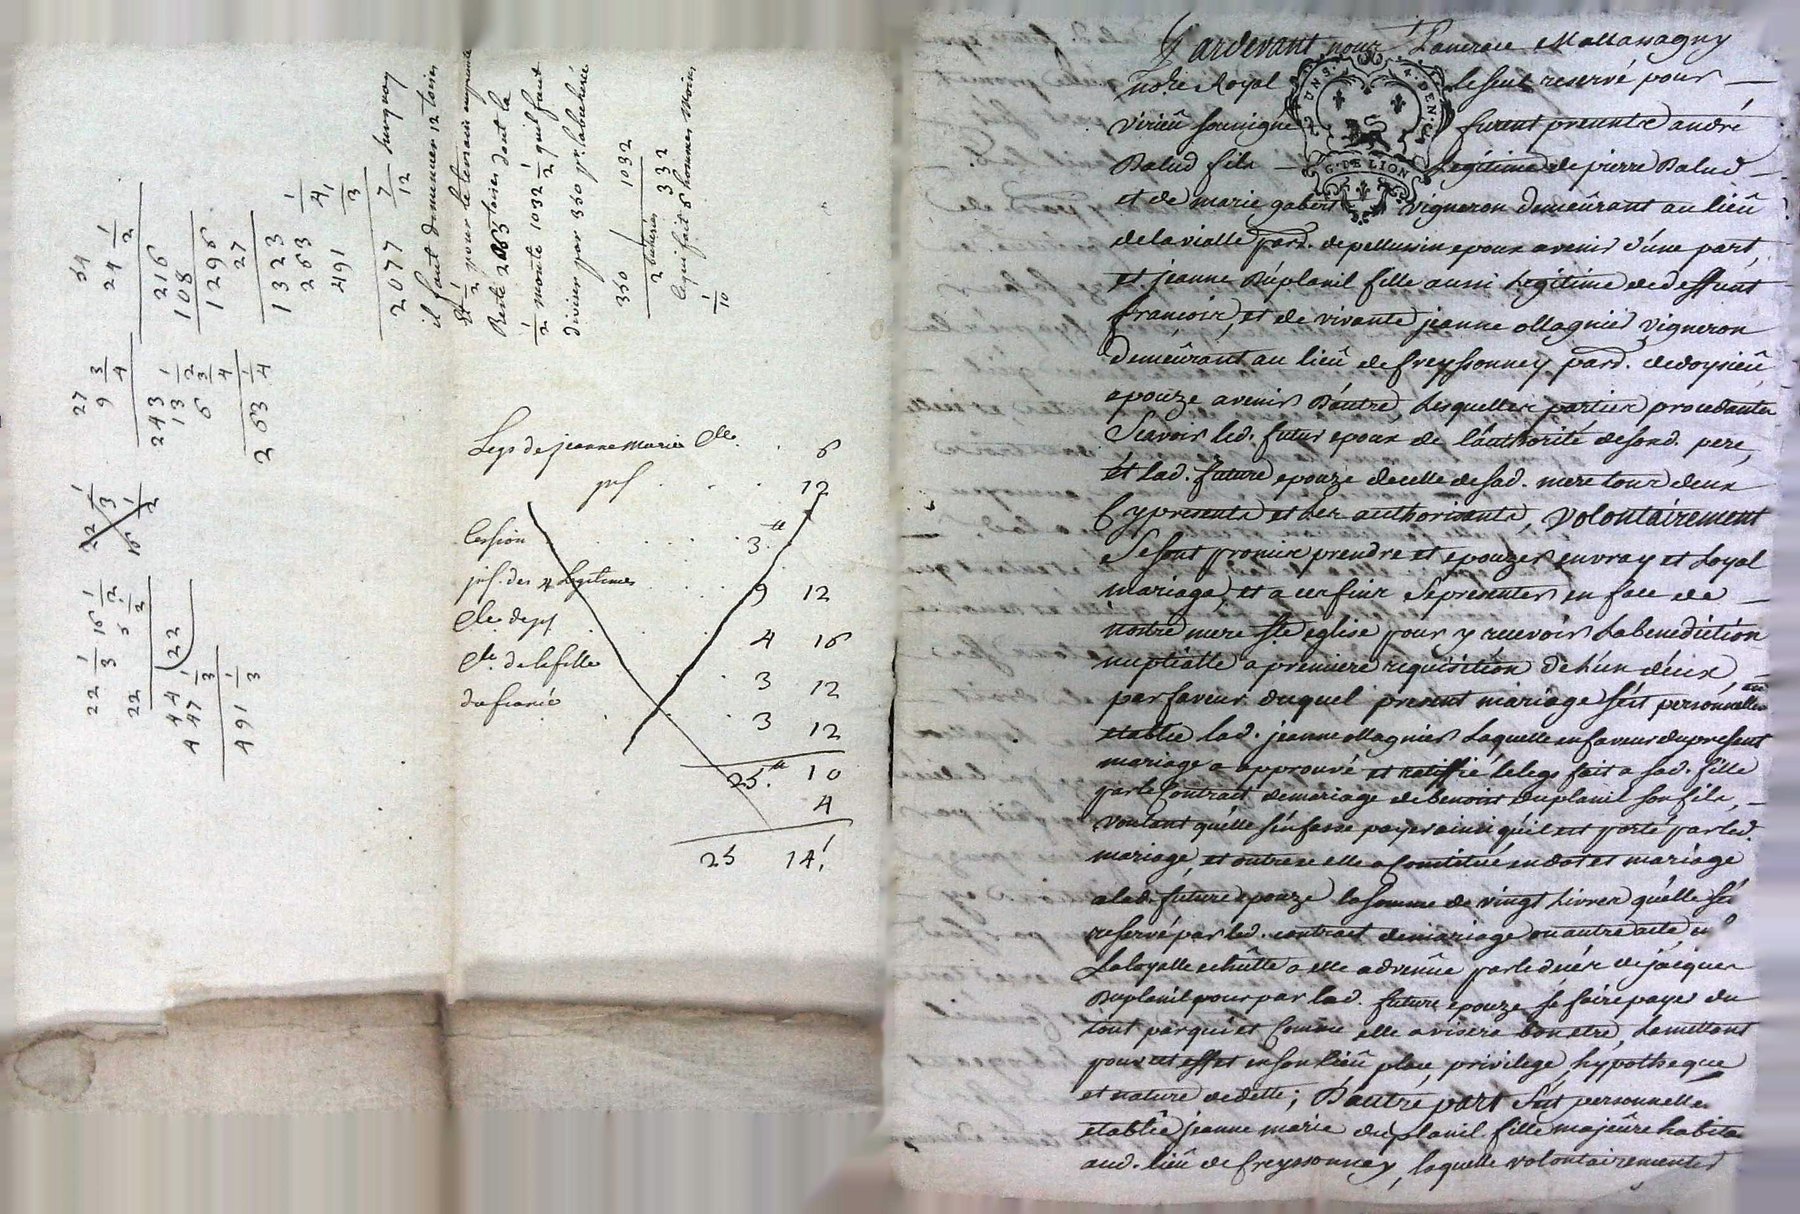 54
24 1/2
216
108
1296
27
1323
263 1/4
491 1/3
2077 7/12 surquoy
il faut diminuer 12 toises
et 1/2 pour le terrain
Reste 2065 toises dont la
1/2 monte 1032 1/2 qu'il faut
diviser par 350 pr. labucherie
350 / 1032
2 bucheries 332
ce qui fait 6 hommes moins
1/10
27
9 3/4
243
13 1/2
6 3/4
263 1/4
22 1/3
16 1/2
22 1/3 16 1/2
22 5 1/2
44 (22
447 1/3
491 1/3
Legs de jeanne marie 6
12
Cession 3 tt
des 4 Legitimes 9 12
4 16
de la fille 3 12
du fiancé 3 12
25 tt 10
4
25 14
Pardevant nous
nore Royal le seul reservé pour
virieû soussigné furent presents andré
Balud fils legitime de pierre Balud
et de marie gabert vigneron demeûrant au lieû
de la vialle parr. de pellussin epoux avenir d'une part,
et jeanne Duplanil fille aussi legitime de deffunt
françois, et de vivante jeanne ollagnier vigneron
demeûrant au lieû de freyssonney parr. de doysieû
epouze avenir D'autre, Lesquelles parties procedantes
Scavoir led. futur epoux de l'authorité de sond. pere,
et lad. future epouze de celle de sad. mere tous deux
Cy presents et les authorisants, volontairement
Se sont promis prendre et epouzer en vray et Loyal
mariage, et a ces fins Se presenter en face de
nostre mere Ste eglise pour y recevoir La benediction
nuptialle a premiere requisition de l'un d'eux,
par faveur duquel present mariage s'est personnelle
etablie lad. jeanne ollagnier Laquelle en faveur du present
mariage a approuvé et ratiffié le legs fait a sad. fille
par le Contrait de mariage de benoist duplanil son fils,
voulant qu'elle s'en fasse payer ainsi qu'il est porté par led.
mariage, et outre ce elle a Constitué en dot et mariage
a lad. future epouze la somme de vingt Livres qu'elle s'est
reservé par led. contrait de mariage ou autre acte
La loyalle echûtte a elle advenûe par le decès de jacques
Duplanil pour par lad. future epouze se faire payer du
tout par qui et Comme elle avisera bon etre, La mettant
pour cet effet en son lieû place, privilege, hypotheque
et nature de dette; D'autre part s'est personnelle
etablie jeanne marie duplanil fille majeûre habita
aud. lieû de freyssonney, laquelle volontairement
G. DE LION